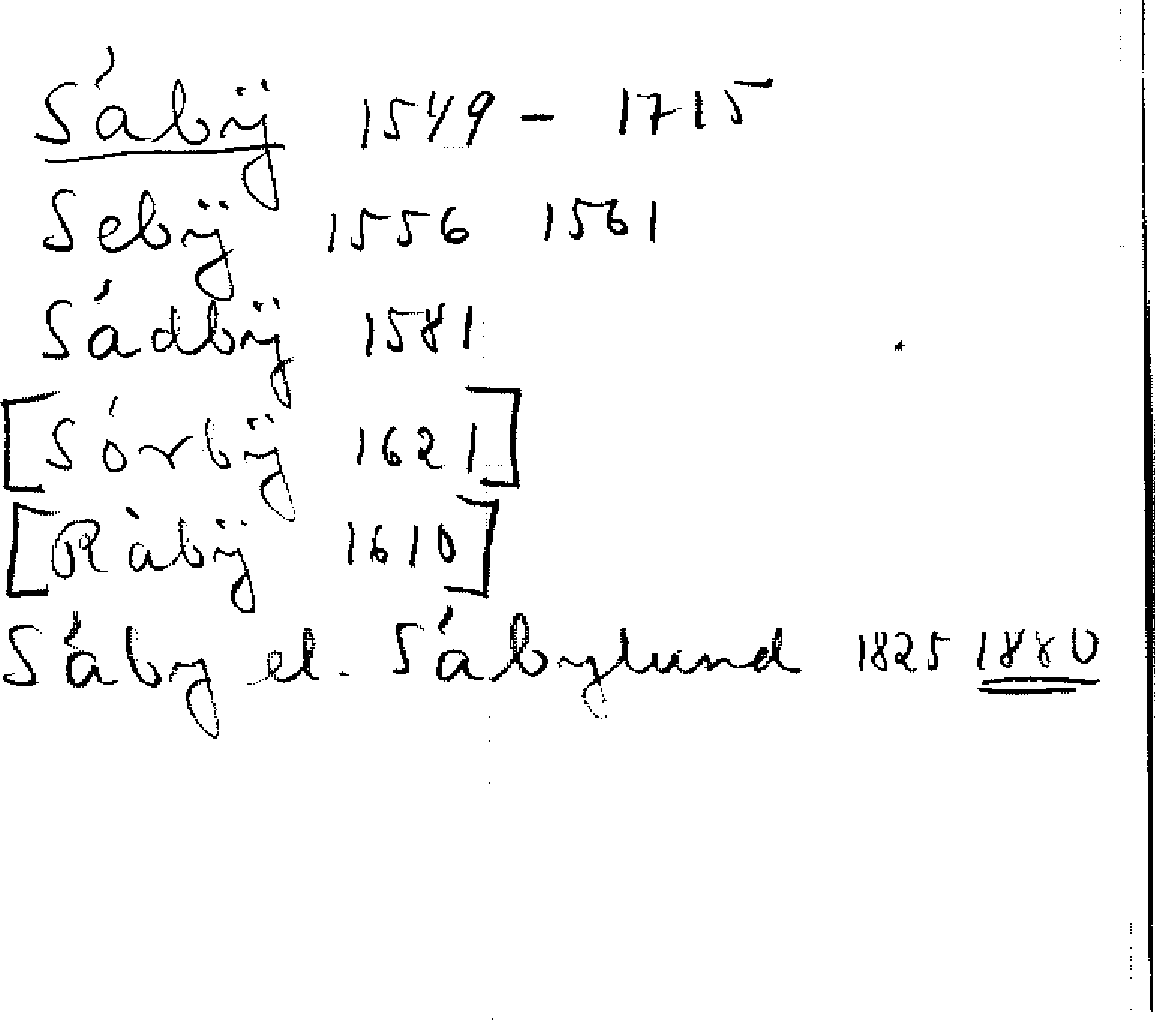 Såbÿ 1549 - 1715
Sebÿ 1556 1561
Sådbÿ 1581
[Sórbÿ 1621]
[Råbÿ 1610]
Såby el. Såbylund 1825 1880